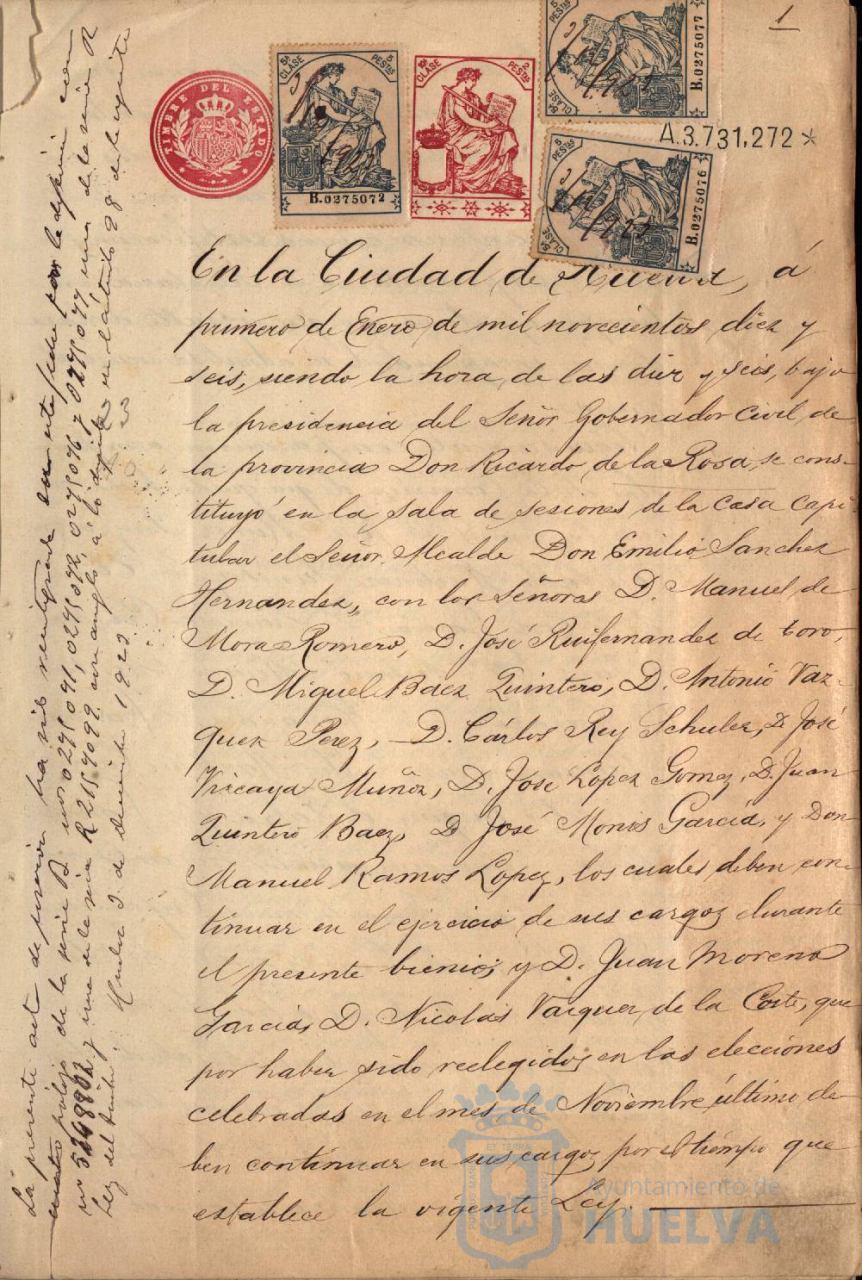 1
TIMBRE DEL ESTADO
5ª CLASE
5 PESTAS
B.0275072
10ª CLASE
2 PESTAS
5 PESTAS
5ª CLASE
B.0275077
A.3.731,272 *
5 PESTAS
5ª CLASE
B.0275076
En la Ciudad de Huelva, á
primero de Enero de mil novecientos diez y
seis, siendo la hora de las diez y seis, bajo
la presidencia del Señor Gobernador Civil de
la provincia Don Ricardo de la Rosa, se cons-
tituyó en la sala de sesiones de la casa Capi
tular el Señor Alcalde Don Emilio Sanchez
Hernandez, con los Señores D. Manuel de
Mora Romero, D. José Ruifernandez de toro,
D. Miguel Baez Quintero, D. Antonio Vaz-
quez Perez, D. Cárlos Rey Schuler, D José
Vizcaya Muñoz, D. Jose Lopez Gomez, D. Juan
Quintero Baez, D José Monos García, y Don
Manuel Ramos Lopez, los cuales deben con-
tinuar en el ejercicio de sus cargos durante
el presente bienio; y D. Juan Moreno
García, D. Nicolás Vazquez de la Corte, que
por haber sido reelegidos en las elecciones
celebradas en el mes de Noviembre último de-
ben continuar en sus cargos por el tiempo que
establece la vigente Ley.
La presente acta de posesión ha sido reintegrada con esta fecha por la
cuatro de la serie B. nos 0275071, 0275072, 0275076 y 0275077 una de la serie R
no y una de la serie R con arreglo a lo en el artículo 28 de la vigente
Ley del timbre. Huelva 3 de 1922
Ayuntamiento de
HUELVA